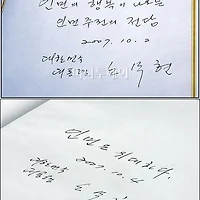 인민의 행복이 나오는
인민 주권의 전당
2007. 10. 2
대한민국
대통령 노무현
인민은 위대하다.
2007. 10. 4
대한민국
대통령